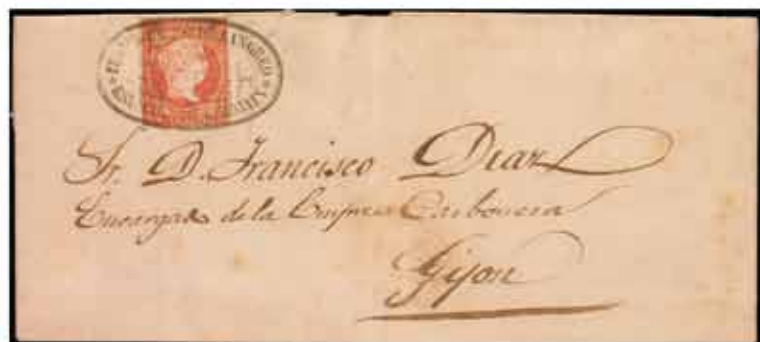 LANGREO
Sr. D. Francisco Diaz
Encargado de la Empresa Carbonera
Gijon